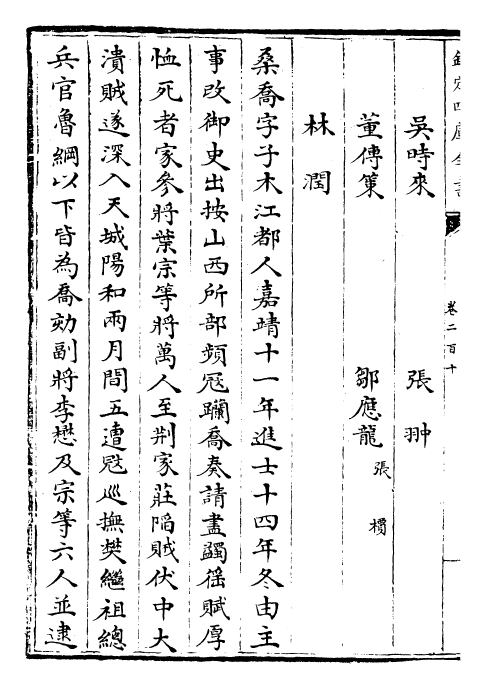 欽定四庫全書
卷二百十
吳時來 張翀
董傳策 鄒應龍 張檟
林潤
桑喬字子木江都人嘉靖十一年進士十四年冬由主
事改御史出按山西所部頻寇躪喬奏請盡蠲徭賦厚
恤死者家參將葉宗等將萬人至荆家莊陷賊伏中大
潰賊遂深入天城陽和兩月間五遭寇巡撫樊繼祖總
兵官魯綱以下皆為喬劾副將李懋及宗等六人並逮